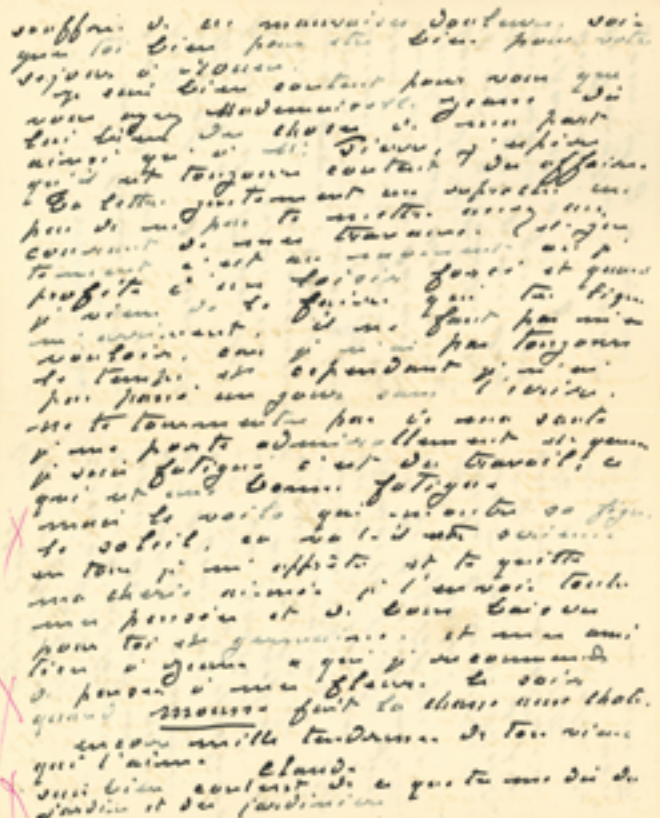 souffre de ces mauvaises douleurs. sois
que toi bien pour être bien pour votre
séjour à Rouen.
Je suis bien content pour vous que
vous ayez Mademoiselle Jeanne dis
lui bien des choses de ma part
ainsi qu'à M. Pierre, j'espère
qu'il est toujours content des affaires.
Ta lettre justement un reproche un
peu de ne pas te mettre assez au
courant de mes travaux
c'est au moment où je
profite d'un loisir forcé et quand
je viens de le faire que tes lignes
m'arrivent. il ne faut pas m'en
vouloir, car je n'ai pas toujours
le temps et cependant je n'ai
pas passé un jour sans t'écrire.
ne te tourmente pas de ma santé
je me porte admirablement et quand
je suis fatigué c'est du travail, ce
qui est une bonne fatigue
mais le voilà qui montre sa figure
le soleil, ça va-t-il être sérieux
en tous je m'apprête et te quitte
ma chérie aimée je t'envoie toute
ma pensée et de bons baisers
pour toi et Germaine. et mes ami
tiés à Jeanne à qui je recommande
de penser à mes fleurs le soir
quand mousse fait la chasse aux chats.
encore mille tendresses de ton vieux
qui t'aime. Claude
suis bien content de ce que tu me dis du
jardin et des jardiniers